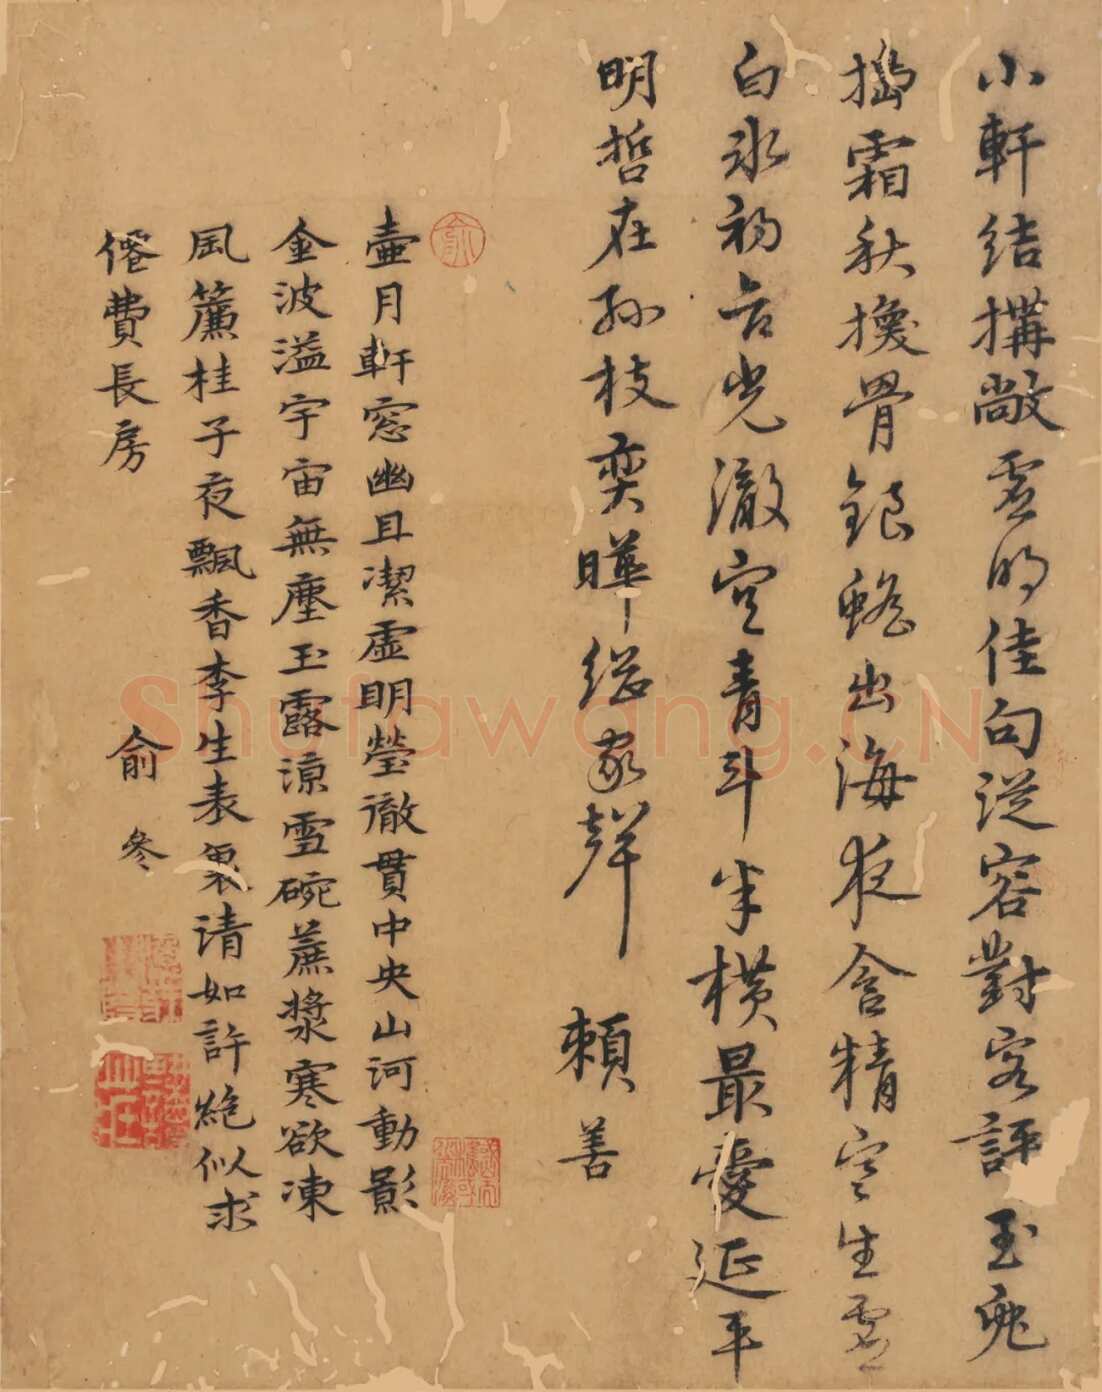 小軒結搆敞虛明佳句從容對客評玉兔
搗霜秋換骨銀蟾出海夜含精室生虛
白水初含光徹空青斗半橫最愛延平
明哲在孫枝奕曄繼家聲 賴善
壺月軒窓幽且潔虛明瑩徹貫中央山河動影
金波溢宇宙無塵玉露涼雪碗蔗漿寒欲凍
風簾桂子夜飄香李生表裏清如許絕似求
僊費長房 俞參
俞
Shufawang.CN